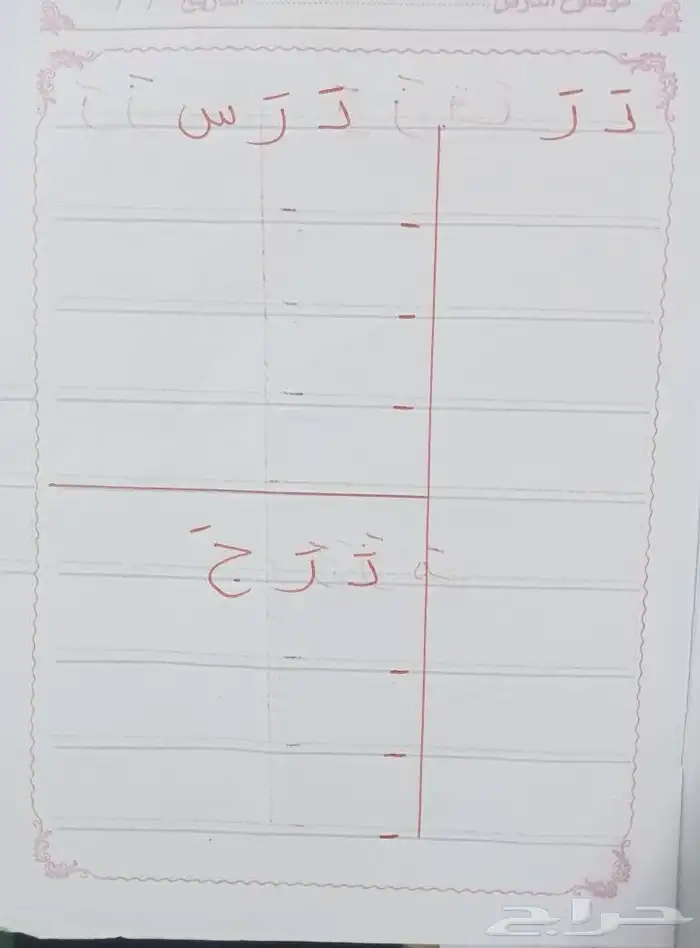 موضوع الدرس ........ التاريخ / /
دَ رَ دَ رَ س
دَ رَ جَ
حراج